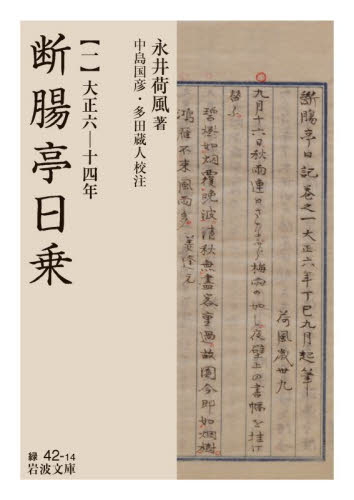 断腸亭日記巻之一大正六年丁巳九月起筆
荷風歳卅九
九月十六日秋雨連日さながら梅雨の如し夜壁上の書幅を挂け
替ふ
碧樹如烟覆晩波清秋無盡客重過故園今即如烟樹
鴻雁不来風雨多 姜逢元
永井荷風 著
中島国彦・多田蔵人校注
【一】大正六―十四年
断腸亭日乗
緑 42-14
岩波文庫